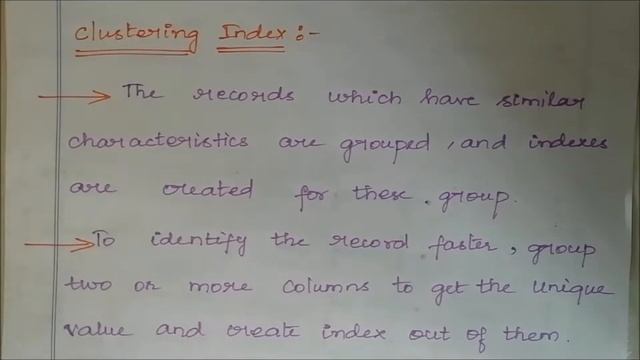 Clustering Index:-
→ The records which have similar
characteristics are grouped, and indexes
are created for these group.
→ To identify the record faster, group
two or more columns to get the unique
value and create index out of them.